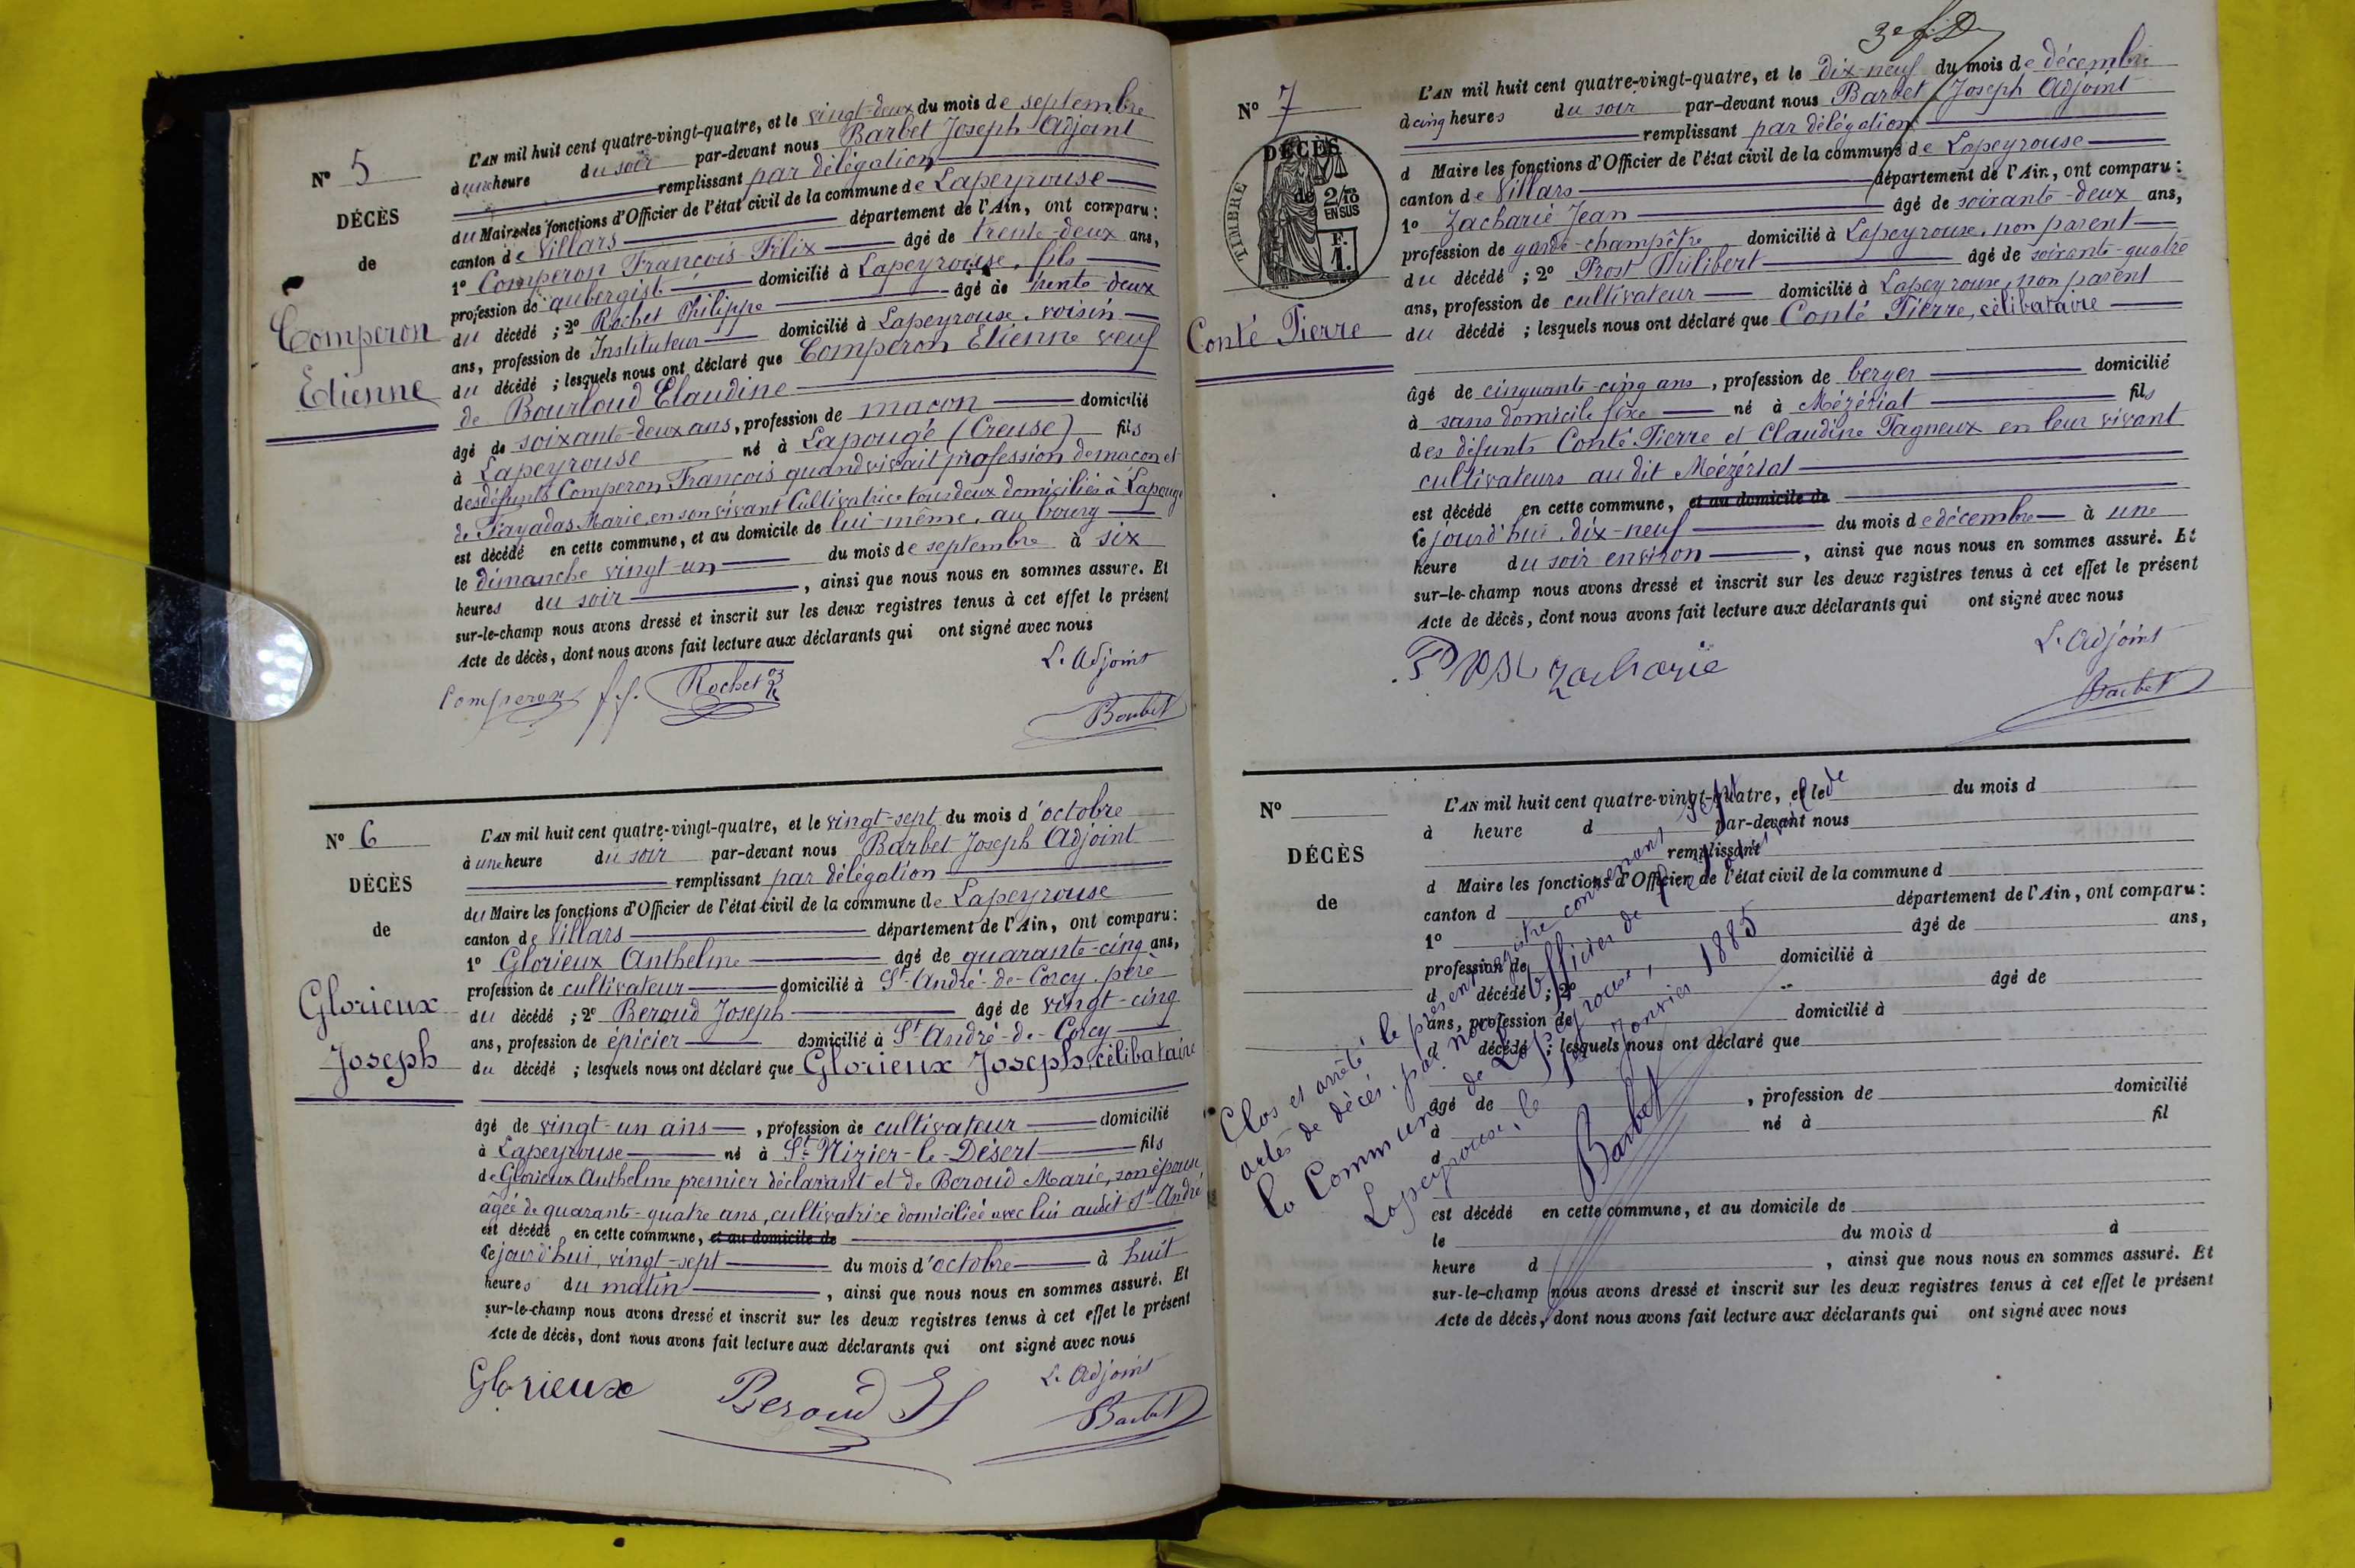 N° 5
DÉCÈS
de
Comperon
Etienne
L'AN mil huit cent quatre-vingt-quatre, et le vingt-deux du mois de septembre
à une heure du soir par-devant nous Barbet Joseph Adjoint
remplissant par délégation
du Maire les fonctions d'Officier de l'état civil de la commune de Lapeyrouse
canton de Villars département de l'Ain, ont comparu :
1° Comperon François-Félix âgé de trente-deux ans,
profession de aubergiste domicilié à Lapeyrouse, fils
du décédé ; 2° Rochet Philippe âgé de trente-deux
ans, profession de Instituteur domicilié à Lapeyrouse, voisin
du décédé ; lesquels nous ont déclaré que Comperon Etienne veuf
de Bourloud Claudine
âgé de soixante-deux ans, profession de maçon domicilié
à Lapeyrouse né à Lapouge (Creuse) fils
des défunts Comperon François quand vivait profession de maçon et
de Fayadas Marie, en son vivant Cultivatrice tous deux domiciliés à Lapouge
est décédé en cette commune, et au domicile de lui-même, au bourg
le dimanche vingt-un du mois de septembre à six
heures du soir, ainsi que nous nous en sommes assuré. Et
sur-le-champ nous avons dressé et inscrit sur les deux registres tenus à cet effet le présent
Acte de décès, dont nous avons fait lecture aux déclarants qui ont signé avec nous
L'Adjoint
Comperon f.f. Rochet
Barbet
N° 6
DÉCÈS
de
Glorieux
Joseph
L'AN mil huit cent quatre-vingt-quatre, et le vingt-sept du mois d'octobre
à une heure du soir par-devant nous Barbet Joseph Adjoint
remplissant par délégation
du Maire les fonctions d'Officier de l'état civil de la commune de Lapeyrouse
canton de Villars département de l'Ain, ont comparu :
1° Glorieux Anthelme âgé de quarante-cinq ans,
profession de cultivateur domicilié à St-André-de-Corcy, père
du décédé ; 2° Beroud Joseph âgé de vingt-cinq
ans, profession de épicier domicilié à St-André-de-Corcy
du décédé ; lesquels nous ont déclaré que Glorieux Joseph, célibataire
âgé de vingt-un ans, profession de cultivateur domicilié
à Lapeyrouse né à St-Nizier-le-Désert fils
de Glorieux Anthelme premier déclarant et de Beroud Marie, son épouse
âgée de quarante-quatre ans, cultivatrice domiciliée avec lui audit St-André
est décédé en cette commune, et au domicile de
cejourd'hui, vingt-sept du mois d'octobre à huit
heures du matin, ainsi que nous nous en sommes assuré. Et
sur-le-champ nous avons dressé et inscrit sur les deux registres tenus à cet effet le présent
Acte de décès, dont nous avons fait lecture aux déclarants qui ont signé avec nous
L'Adjoint
Glorieux Beroud
Barbet
N° 7
DÉCÈS
TIMBRE
de 2/10
EN SUS
F.
1.
Conté Pierre
L'AN mil huit cent quatre-vingt-quatre, et le dix-neuf du mois de décembre
à cinq heures du soir par-devant nous Barbet Joseph Adjoint
remplissant par délégation
d Maire les fonctions d'Officier de l'état civil de la commune de Lapeyrouse
canton de Villars département de l'Ain, ont comparu :
1° Zacharie Jean âgé de soixante-deux ans,
profession de garde-champêtre domicilié à Lapeyrouse, non parent
du décédé ; 2° Prost Philibert âgé de soixante-quatre
ans, profession de cultivateur domicilié à Lapeyrouse, non parent
du décédé ; lesquels nous ont déclaré que Conté Pierre, célibataire
âgé de cinquante-cinq ans, profession de berger domicilié
à sans domicile fixe né à Mézériat fils
des défunts Conté Pierre et Claudine Pagneux en leur vivant
cultivateurs au dit Mézériat
est décédé en cette commune, et au domicile de
cejourd'hui, dix-neuf du mois de décembre à une
heure du soir environ, ainsi que nous nous en sommes assuré. Et
sur-le-champ nous avons dressé et inscrit sur les deux registres tenus à cet effet le présent
Acte de décès, dont nous avons fait lecture aux déclarants qui ont signé avec nous
L'Adjoint
zacharie
Barbet
N°
DÉCÈS
de
L'AN mil huit cent quatre-vingt-quatre, et le du mois d
à heure d par-devant nous
remplissant
d Maire les fonctions d'Officier de l'état civil de la commune d
canton d département de l'Ain, ont comparu :
1° âgé de ans,
profession de domicilié à
d décédé ; 2° âgé de
ans, profession de domicilié à
d décédé ; lesquels nous ont déclaré que
âgé de , profession de domicilié
à né à fil
d
est décédé en cette commune, et au domicile de
le du mois d à
heure d , ainsi que nous nous en sommes assuré. Et
sur-le-champ nous avons dressé et inscrit sur les deux registres tenus à cet effet le présent
Acte de décès, dont nous avons fait lecture aux déclarants qui ont signé avec nous
Clos et arrêté le présent registre contenant sept
actes de décès, par nous Officier de
la Commune de Lapeyrouse,
Lapeyrouse, le Janvier 1885
Barbet